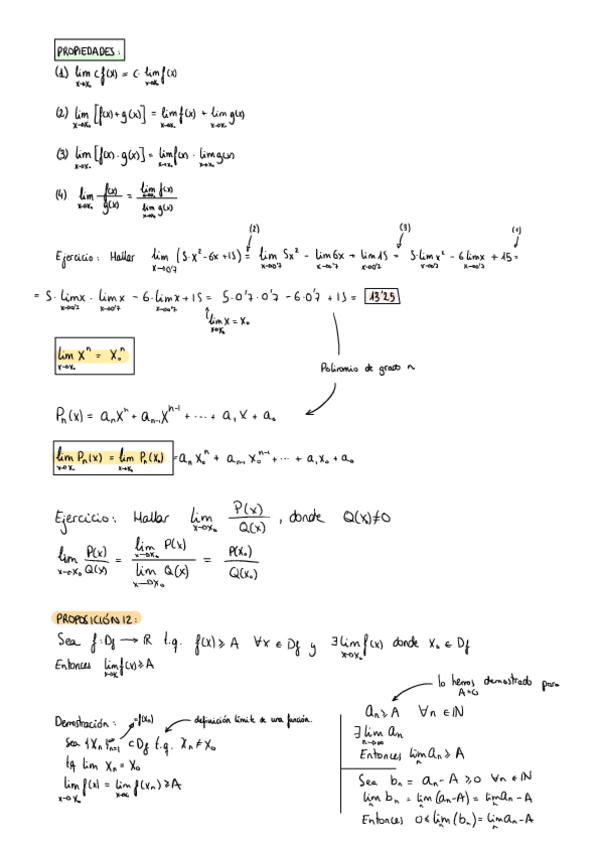 PROPIEDADES:
(1) lim_{x→x₀} c f(x) = c · lim_{x→x₀} f(x)
(2) lim_{x→x₀} [f(x)+g(x)] = lim_{x→x₀} f(x) + lim_{x→x₀} g(x)
(3) lim_{x→x₀} [f(x)·g(x)] = lim_{x→x₀} f(x) · lim_{x→x₀} g(x)
(4) lim_{x→x₀} f(x)/g(x) = lim_{x→x₀} f(x) / lim_{x→x₀} g(x)
(2) (3) (1)
Ejercicio: Hallar lim_{x→0'7} (5·x²-6x+15) = lim_{x→0'7} 5x² - lim_{x→0'7} 6x + lim_{x→0'7} 15 = 5·lim_{x→0'7} x² - 6 lim_{x→0'7} x + 15 =
= 5·lim_{x→0'7} x · lim_{x→0'7} x - 6·lim_{x→0'7} x + 15 = 5·0'7·0'7 - 6·0'7 + 15 = 13'25
lim_{x→x₀} x = x₀
lim_{x→x₀} xⁿ = x₀ⁿ
Polinomio de grado n
Pₙ(x) = aₙxⁿ + aₙ₋₁xⁿ⁻¹ + ··· + a₁x + a₀
lim_{x→x₀} Pₙ(x) = lim_{x→x₀} Pₙ(x₀) = aₙx₀ⁿ + aₙ₋₁x₀ⁿ⁻¹ + ··· + a₁x₀ + a₀
Ejercicio: Hallar lim_{x→x₀} P(x)/Q(x), donde Q(x)≠0
lim_{x→x₀} P(x)/Q(x) = lim_{x→x₀} P(x) / lim_{x→x₀} Q(x) = P(x₀)/Q(x₀)
PROPOSICIÓN 12:
Sea f: Df → ℝ t.q. f(x) ≥ A ∀x ∈ Df y ∃ lim_{x→x₀} f(x) donde x₀ ∈ Df
Entonces lim_{x→x₀} f(x) ≥ A
Demostración: =f(xₙ) definición límite de una función.
Sea {xₙ}ₙ₌₁^∞ ⊂ Df t.q. xₙ ≠ x₀
t.q lim xₙ = x₀
lim_{x→x₀} f(x) = lim_{x→∞} f(xₙ) ≥ A
lo hemos demostrado para
A=0
aₙ ≥ A ∀n ∈ ℕ
∃ lim_{n→∞} aₙ
Entonces lim_n aₙ ≥ A
Sea bₙ = aₙ - A ≥ 0 ∀n ∈ ℕ
lim_n bₙ = lim_n (aₙ-A) = lim_n aₙ - A
Entonces 0 ≤ lim_n (bₙ) = lim_n aₙ - A